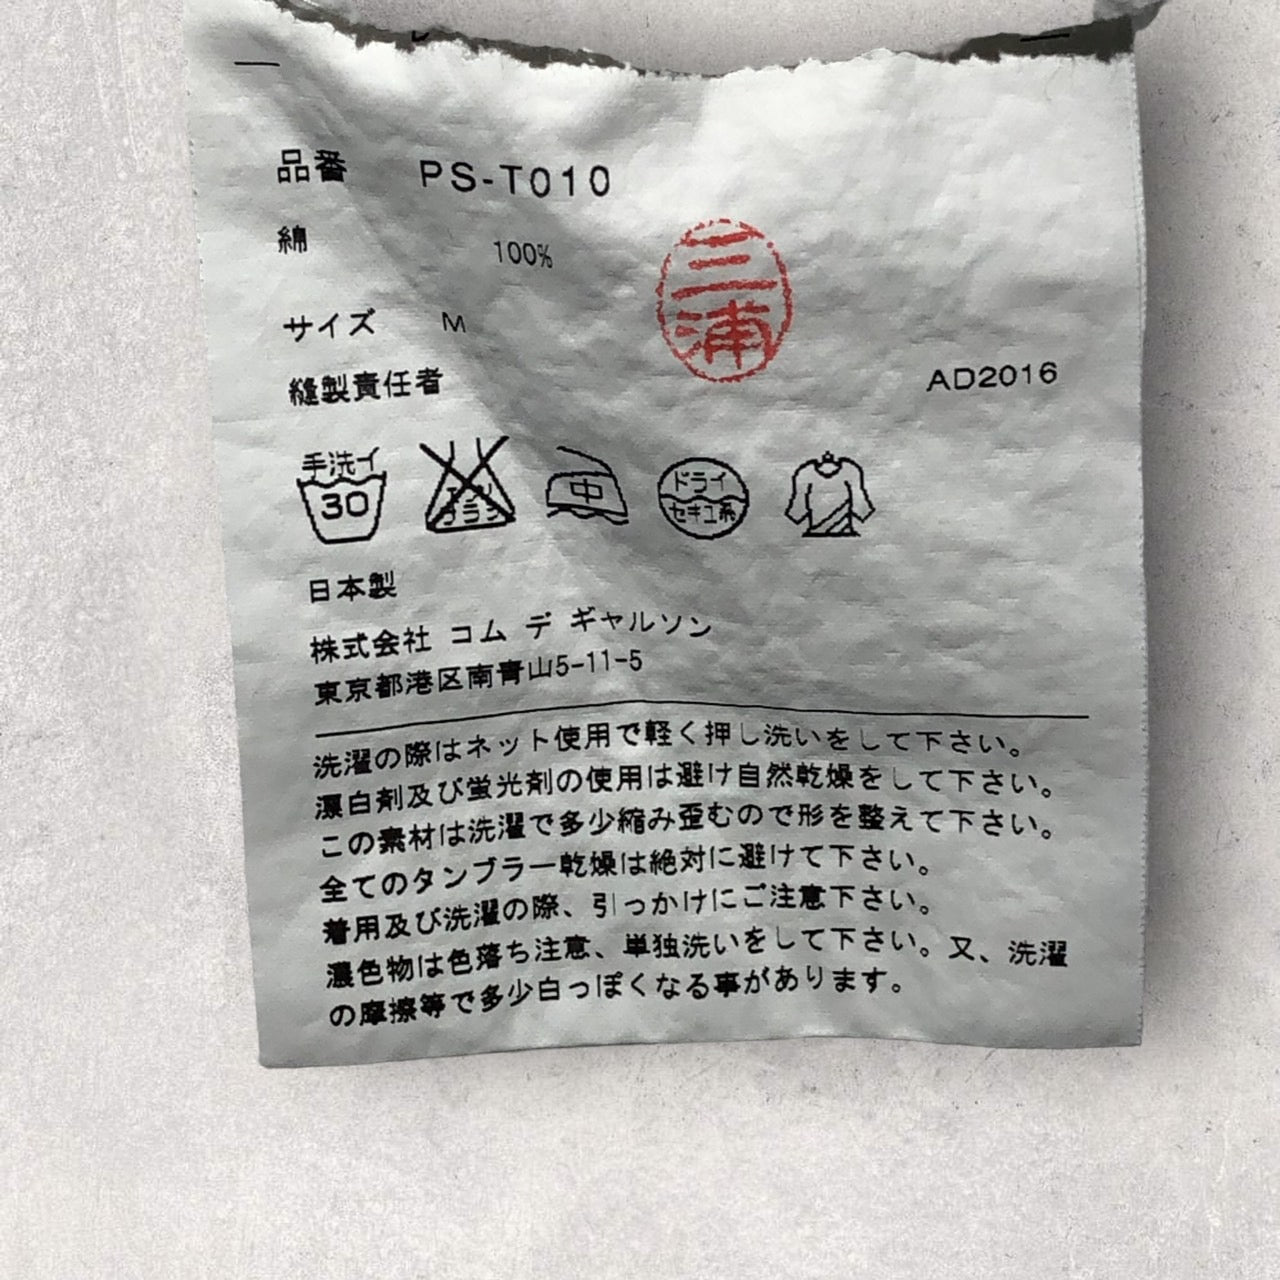 品番 PS-T010
綿 100%
三浦
サイズ M
縫製責任者
AD2016
手洗イ
30
エンソ
サラシ
中
ドライ
セキユ系
日本製
株式会社 コム デ ギャルソン
東京都港区南青山5-11-5
洗濯の際はネット使用で軽く押し洗いをして下さい。
漂白剤及び蛍光剤の使用は避け自然乾燥をして下さい。
この素材は洗濯で多少縮み歪むので形を整えて下さい。
全てのタンブラー乾燥は絶対に避けて下さい。
着用及び洗濯の際、引っかけにご注意下さい。
濃色物は色落ち注意、単独洗いをして下さい。又、洗濯
の摩擦等で多少白っぽくなる事があります。